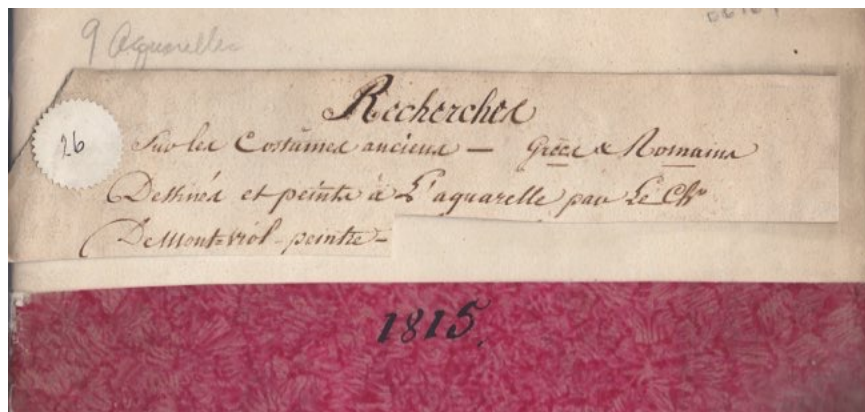 9 Aquarelles
26
Recherches
Sur les Costumes anciens — Grecs & Romains
Dessinés et peints à L'aquarelle par Le Ch.er
De Mont-viol - peintre -
1815.